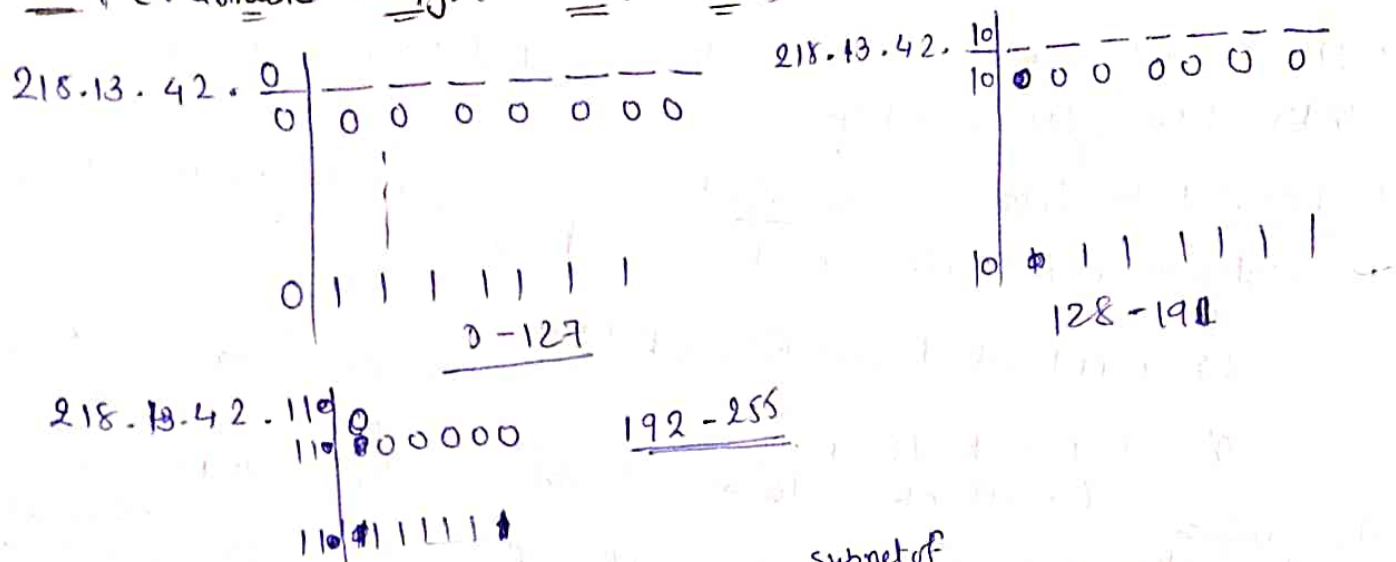 218.13.42. 0 | _ _ _ _ _ _ _
0 | 0 0 0 0 0 0 0
0 | 1 1 1 1 1 1 1
0 - 127
218.13.42. 10 | _ _ _ _ _ _ _
10 | 0 0 0 0 0 0 0
10 | 1 1 1 1 1 1
128 - 191
218.13.42. 110 | 0
110 | 0 0 0 0 0 0
192 - 255
110 | 1 1 1 1 1 1
subnet of